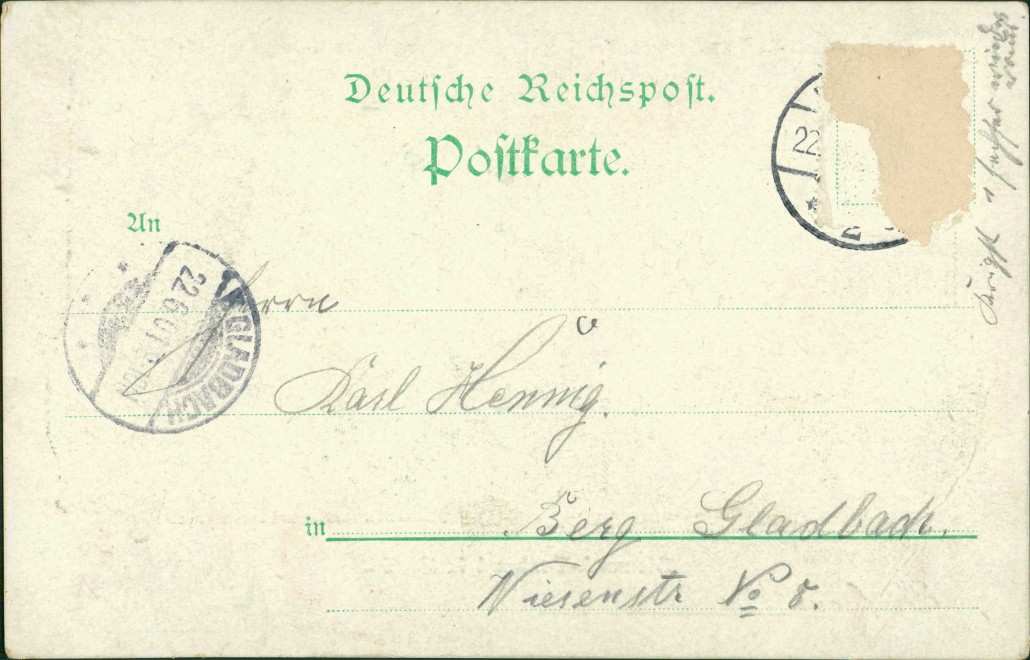 Deutsche Reichspost.
Postkarte.
An
22.
22.6.01
GLADBACH
Herrn
Karl Hennig.
in Berg Gladbach.
Wiesenstr No 8.